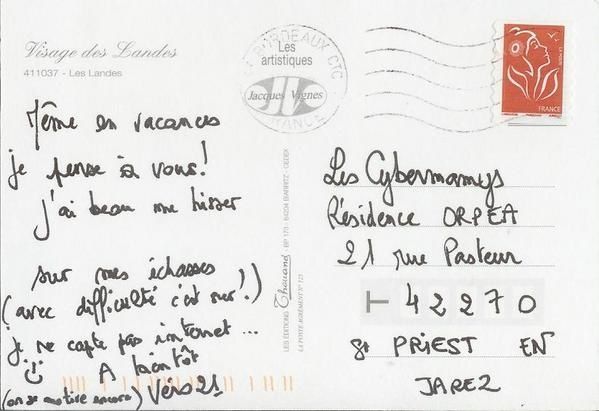 Visage des Landes
411037 - Les Landes
BORDEAUX CTC
Les
artistiques
Jacques Vignes
FRANCE
LA POSTE
FRANCE
Même en vacances
je pense à vous !
j'ai beau me hisser
sur mes échasses
(avec difficulté c'est sur !)
je ne capte pas internet ...
A bientôt
(on se motive encore) Vers 21
LES ÉDITIONS Thouand - BP 173 - 64204 BIARRITZ - CEDEX
LA POSTE AGRÉMENT N° 123
Les Cybermamys
Résidence ORPEA
21 rue Pasteur
42270
St PRIEST EN
JAREZ